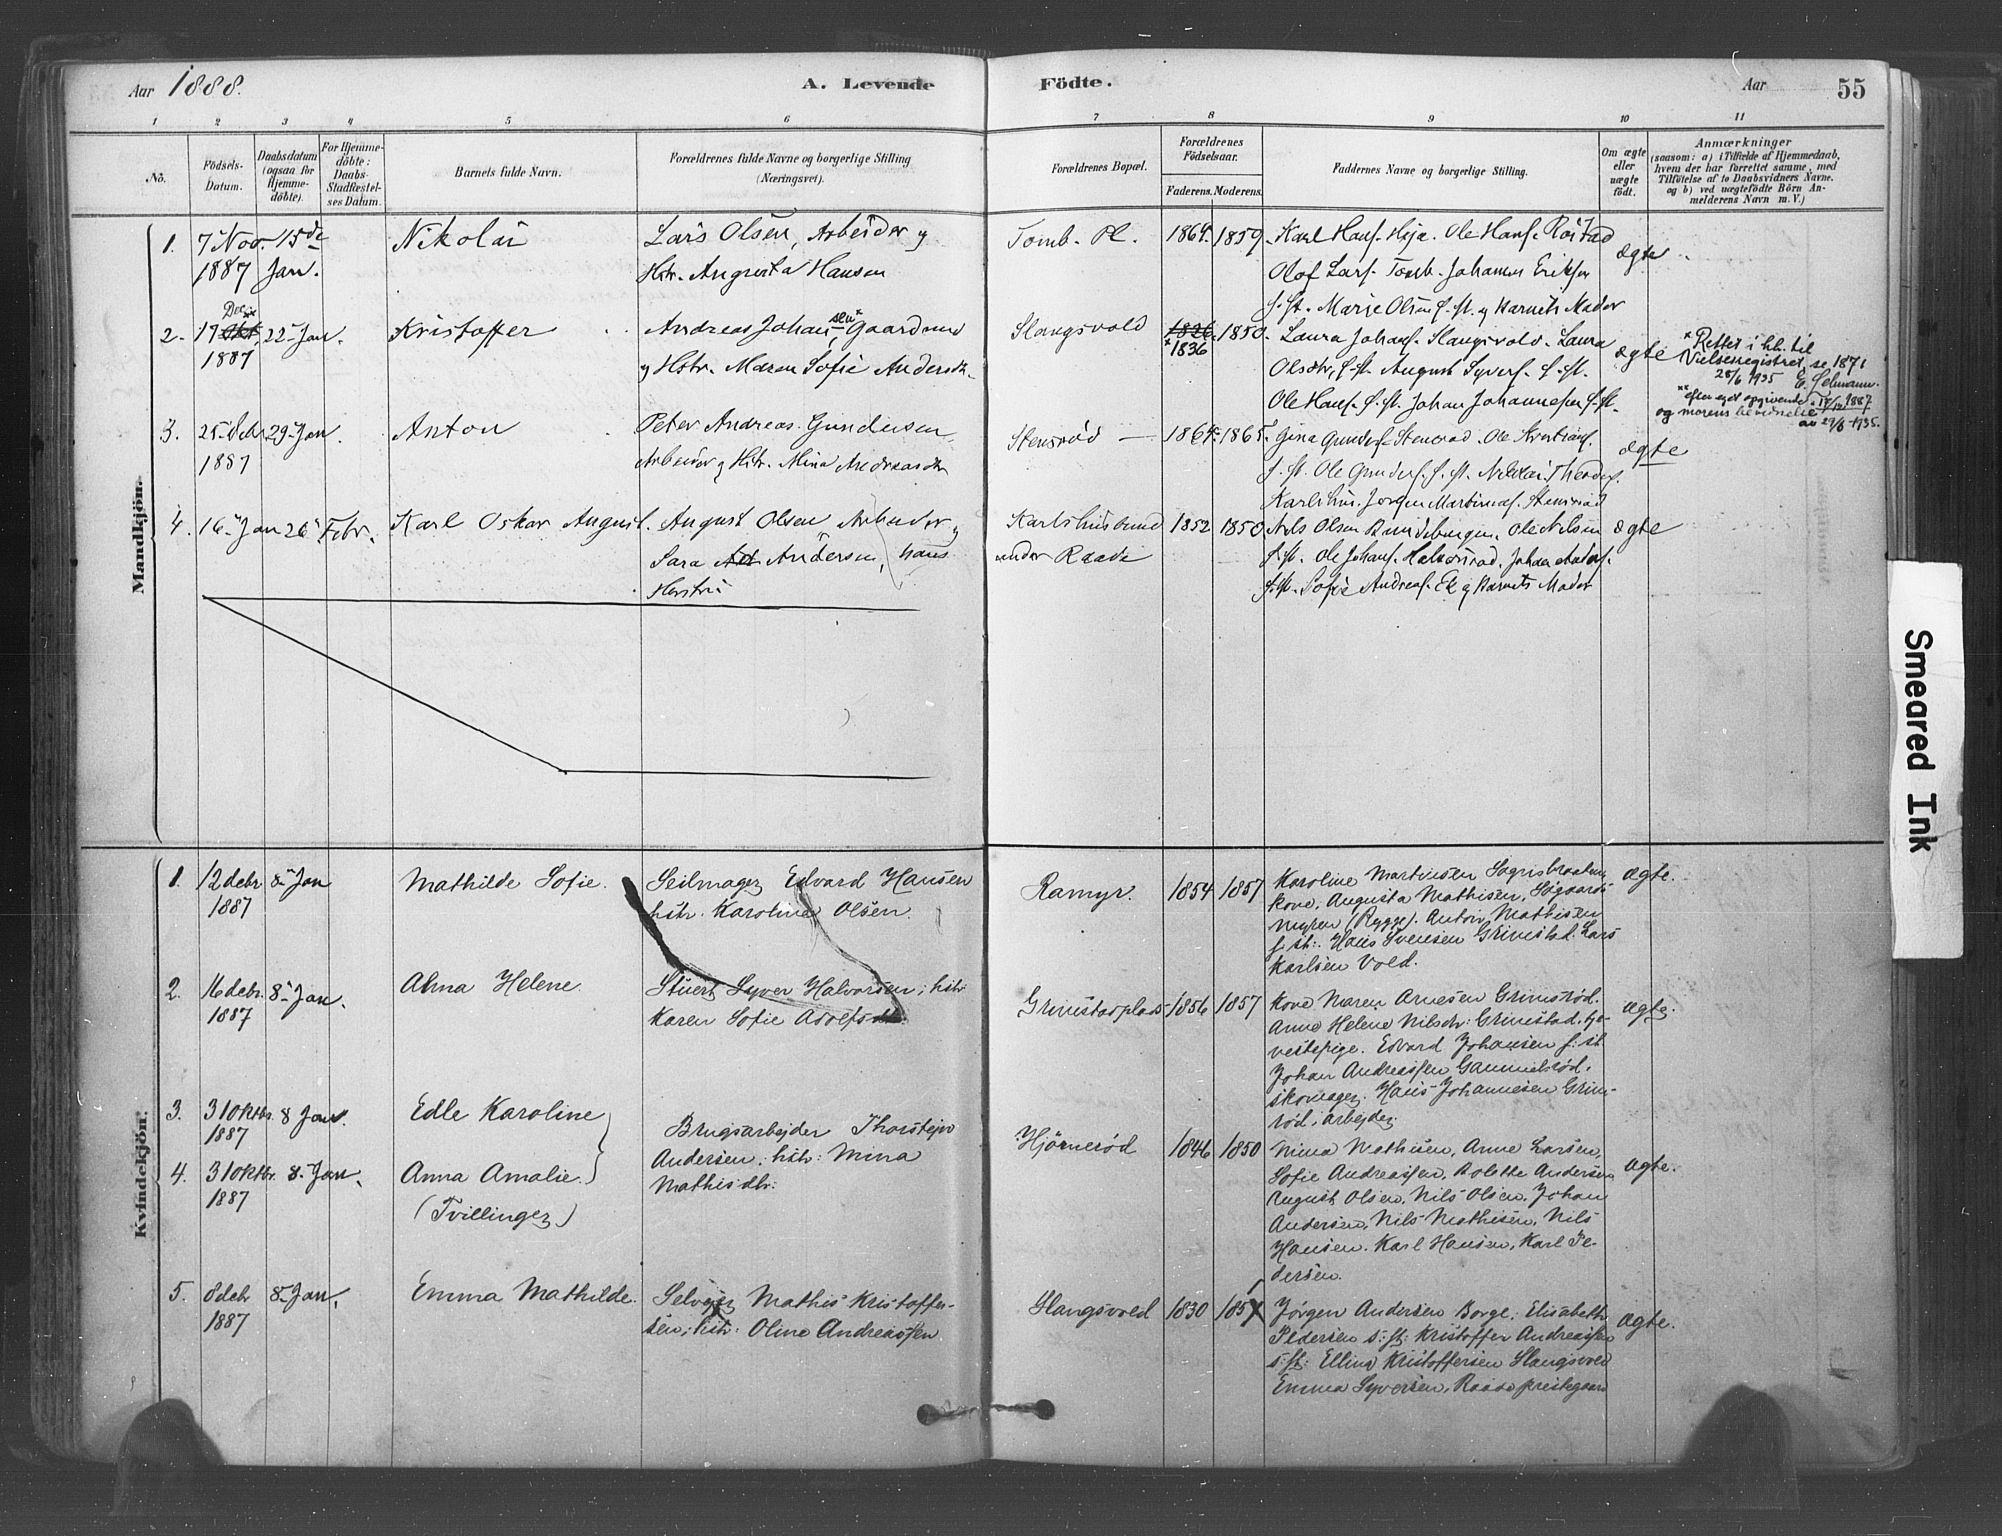 Aar 1888.
A. Levende
Födte.
Aar
55
1 2 3 4 5 6 7 8 9 10 11
No.
Födsels-
Datum.
Daabsdatum
(ogsaa for
Hjemme-
döbte).
For Hjemme-
döbte:
Daabs-
Stadfæstel-
ses Datum.
Barnets fulde Navn.
Forældrenes fulde Navne og borgerlige Stilling
(Næringsvei).
Forældrenes Bopæl.
Forældrenes
Födselsaar.
Faderens. Moderens.
Faddernes Navne og borgerlige Stilling.
Om ægte
eller
uægte
födt.
Anmærkninger
(saasom: a) i Tilfælde af Hjemmedaab,
hvem der har forrettet samme, med
Tilföielse af to Daabsvidners Navne.
og b) ved uægtefödte Börn An-
melderens Navn m. V.)
Mandkjön.
1. 7 Nov.
1887
15de
Jan.
Nikolai
Lars Olsen, Arbeider og
Hstr. Augusta Hansen
Tomb. Pl.
1864 1859
Karl Hans. Ole Hans.
Olof Lars. Tomb. Johannes
f. st. Marie Olsen f. st. og Barnets Moder
ægte
2. 17 Dec. xx Okt.
1887
22 Jan.
Kristoffer
Andreas Johansen
og Hstr. Maren Sofie Andersdtr.
Slangsvold
1826 1850
x 1836
Laura Johans. Slangsvold. Laura
Olsdtr, f. st. August Syvers. f. st.
Ole Hans. f. st. Johan Johannesen f. st.
ægte
x Rettet i hh. til
Vielsesregistret, se 1871
28/6 1935
xx efter eget opgivende 17/12 1887
og morens bevidnelse
av 27/8 1935.
3. 25 Debr
1887
29 Jan.
Anton
Peter Andreas Gundersen
Arbeider og Hstr. Mina Andreasdtr
Stensrød
1864 1865
Gina Gunders. Stensrød. Ole Kristians.
f. st. Ole Gunders. f. st. Nikolai
Karlshus. Jorgen Martinius. Stensrød
ægte
4. 16 Jan 26 Febr.
Karl Oskar August.
August Olsen Arbeider og
Sara Andersen, hans
Hustru
Karlshusbund
under Raade
1852 1850
Nils Olsen Ole Nilsen
f. st. Ole Johans. Johan Anders.
f. st. Sofie Andreas. Ek og Barnets Moder
ægte
Kvindekjön.
1. 12 debr
1887
8 Jan
Mathilde Sofie.
Seilmager Edvard Hansen
hstr. Karoline Olsen.
Ramyr.
1854 1857
Karoline Martinsen Sognsbraaten,
kone, Augusta Mathisen,
myren (Rygge). Anton Mathisen
f. st: Hans Svensen Grimstad. Lars
Karlsen Vold.
ægte.
2. 16 debr.
1887
8 Jan.
Alma Helene.
Stuert Syver Halvorsen; hstr
Karen Sofie Adolfsdtr.
Grimstadplads
1856 1857
Kone Maren Arnesen Grimsrød.
Anne Helene Nilsdtr: Grimstad, tje-
nestepige. Edvard Johansen f: st.
Johan Andreassen Gammelsrød,
skomager. Hans Johannesen Grim-
rød, arbejder.
ægte.
3. 31 oktbr.
1887
8 Jan.
Edle Karoline
Brugsarbejder Thorstejn
Andersen: hstr: Mina
Mathisdtr:
4. 31 oktbr.
1887
8 Jan.
Anna Amalie.
(Tvillinger)
Hjørnerød
1846 1850
Mina Mathisen, Anne Larsen,
Sofie Andreassen, Bolette Andersen
August Olsen, Nils Olsen, Johan
Andersen, Nils Mathisen, Nils
Hansen. Karl Hansen, Karl Pe-
dersen.
ægte.
5. 8 debr
1887
8 Jan.
Emma Mathilde.
Selvejer Mathis Kristoffer-
sen; hstr: Oline Andreassen.
Slangsvold
1830
Jørgen Andersen Borge: Elisabeth
Pedersen s: st: Kristoffer Andreassen
s: st: Elline Kristoffersen Slangsvold
Emma Syversen, Raade prestegaard
ægte.
Smeared Ink